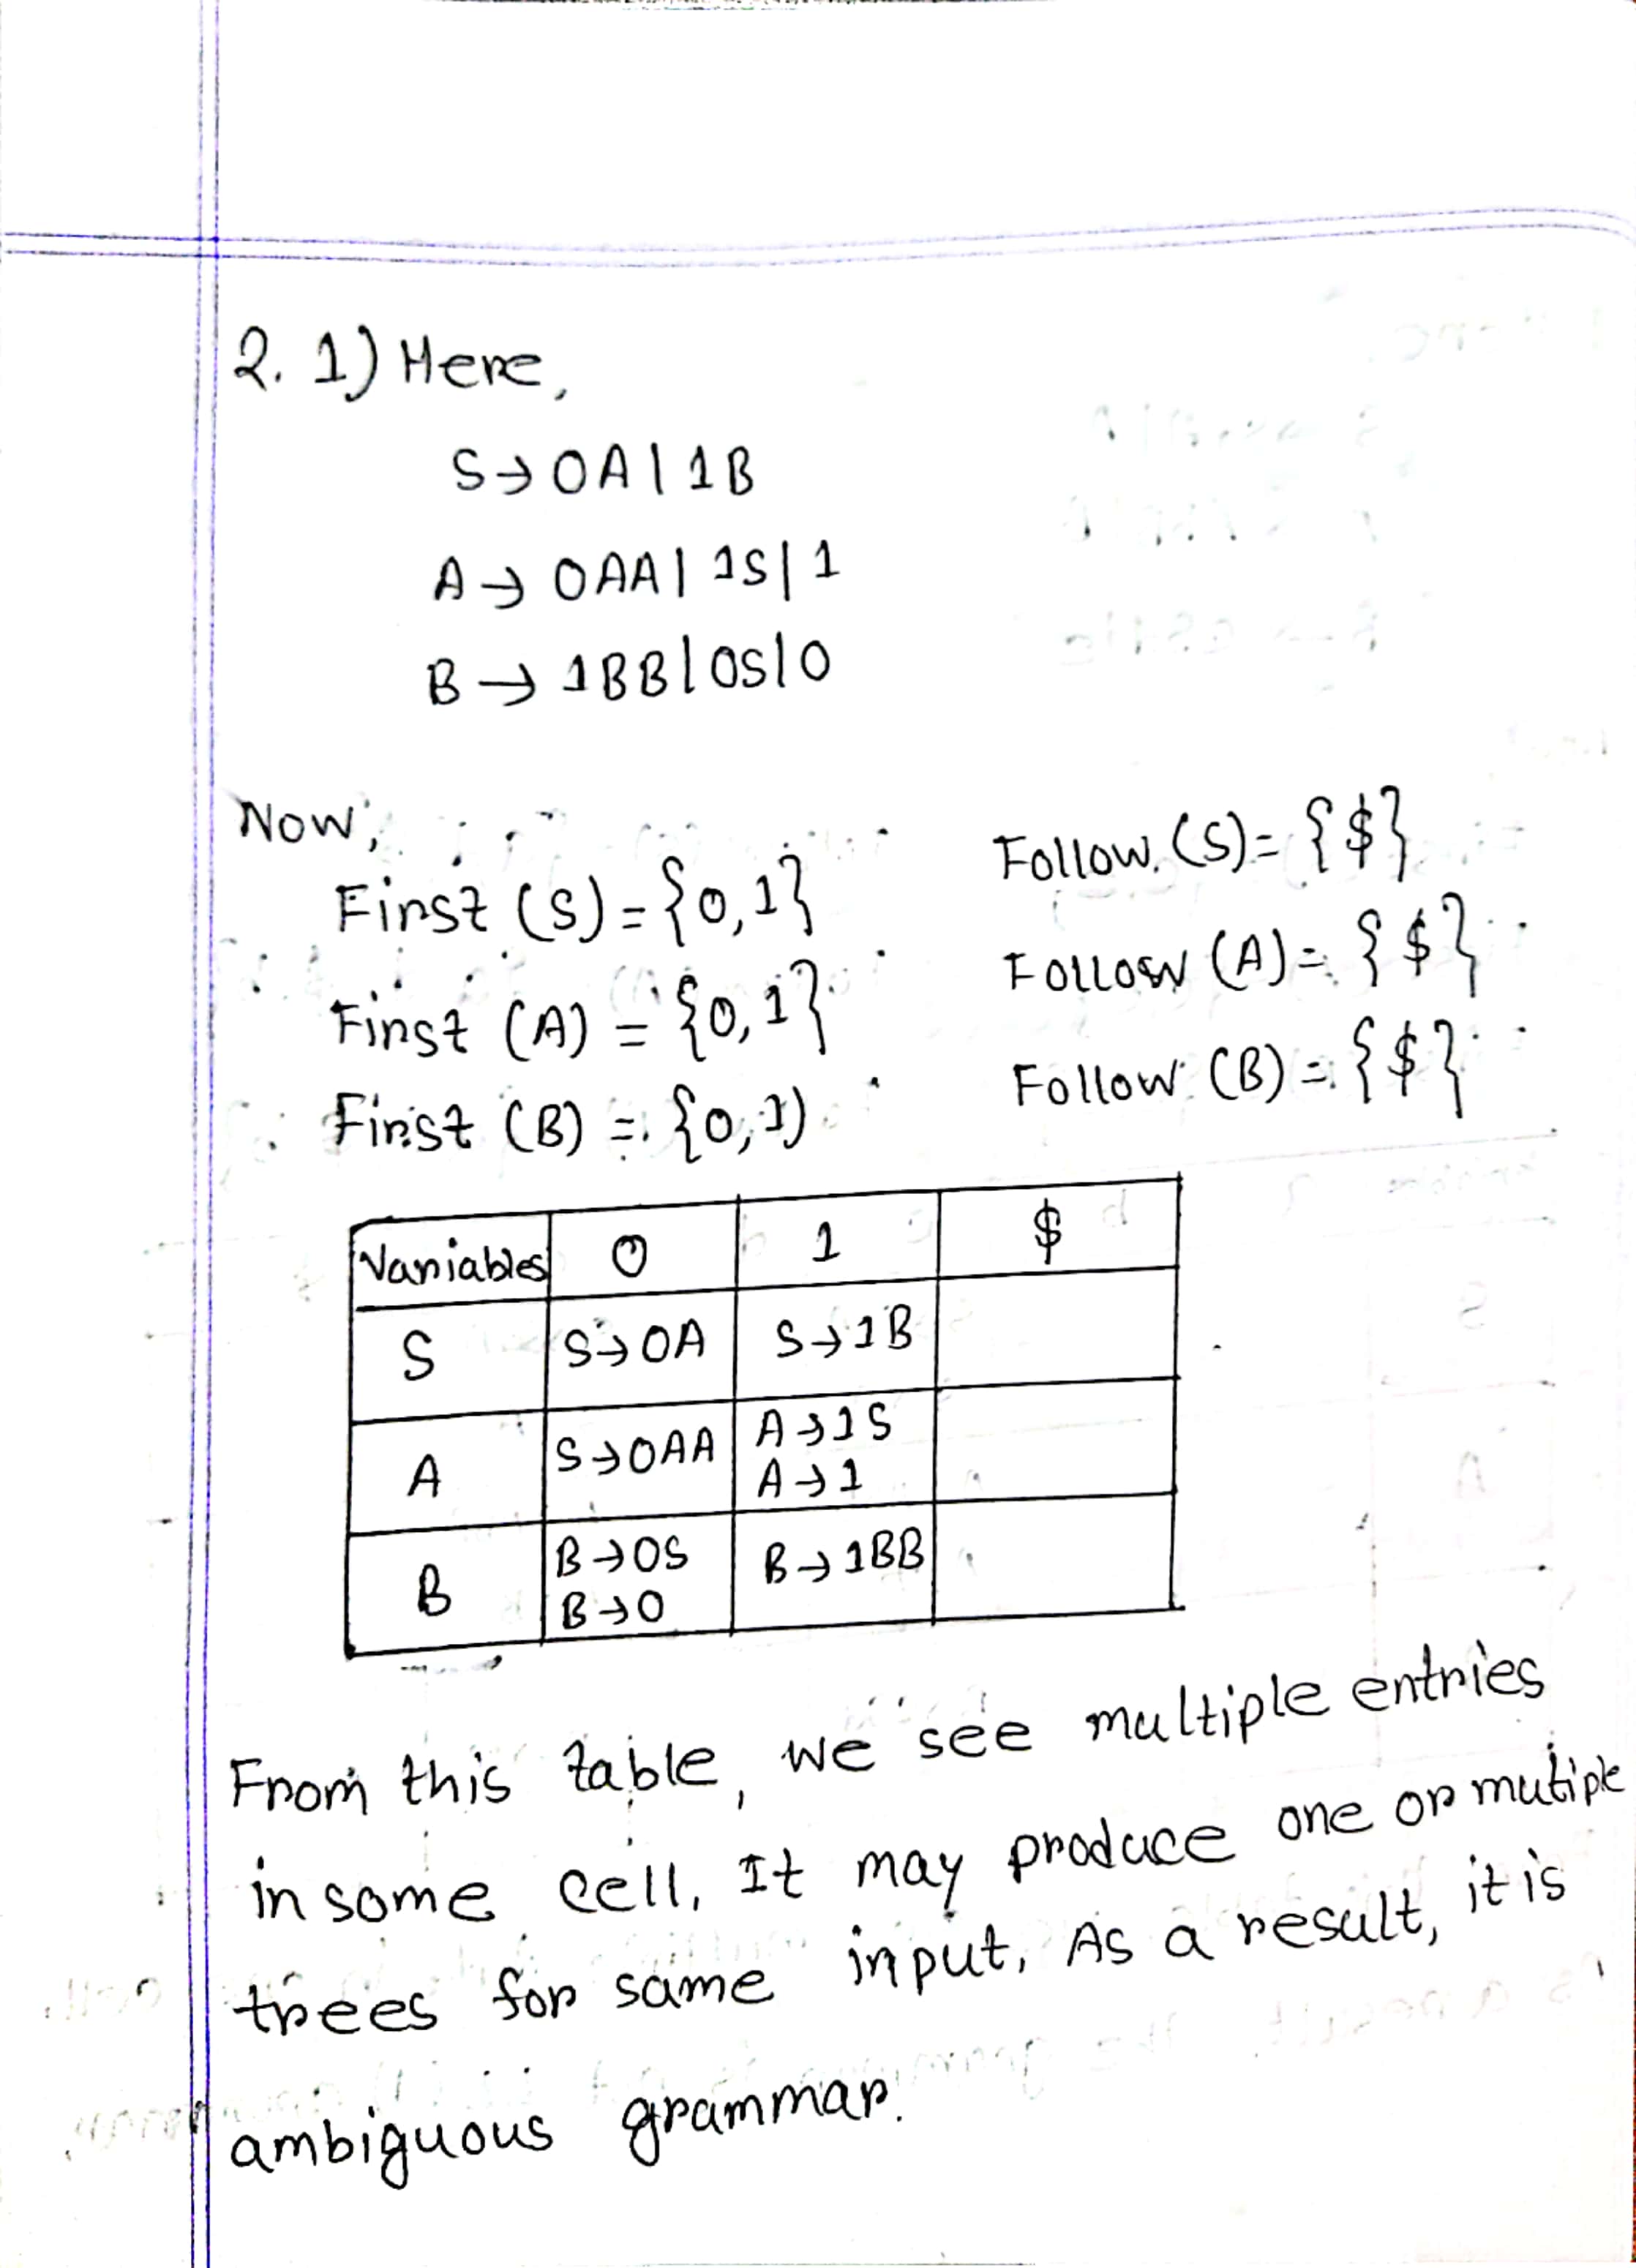 2. 1) Here,
S→0A|1B
A→0AA|1S|1
B→1BB|0S|0
Now,
First (S)={0,1} Follow (S)={$}
First (A)={0,1} Follow (A)={$}
First (B)={0,1) Follow (B)={$}
Variables 0 1 $
S S→0A S→1B
A S→0AA A→1S
A→1
B B→0S B→1BB
B→0
From this table, we see multiple entries
in some cell. It may produce one or mutiple
trees for same input. As a result, it is
ambiguous grammar.